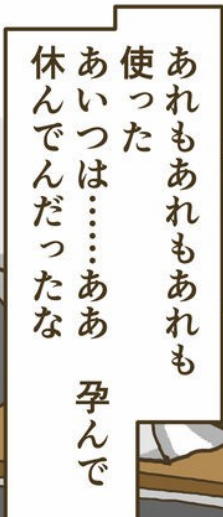 あれもあれもあれも
使った
あいつは……ああ　孕んで
休んでんだったな